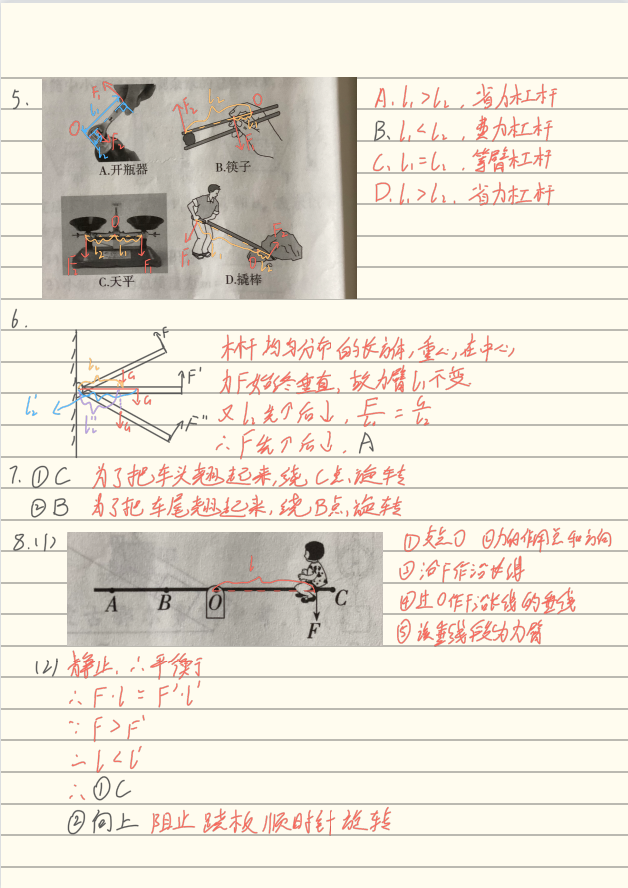 5.
A. l₁>l₂，省力杠杆
B. l₁<l₂，费力杠杆
C. l₁=l₂，等臂杠杆
D. l₁>l₂，省力杠杆
F₁ l₁ O l₂ F₂
F₂ l₂ O l₁ F₁
A.开瓶器 B.筷子
O l₂ l₁ F₂ F₁
F₁ l₁ O l₂ F₂
C.天平 D.撬棒
6.
F
l₂ G F'
l₂' G
l₂'' G F''
木杆均匀分布的长方体，重心在中心，
力F始终垂直，故力臂l₁不变
又l₂先个后↓，
∴F先个后↓，A
7. ①C 为了把车头翘起来，绕C点旋转
②B 为了把车尾翘起来，绕B点旋转
8.(1)
①支点O ②力的作用点和方向
③沿F作延长线
④过O作F延长线的垂线
⑤该垂线段为力臂
l
A B O C
F
(2) 静止，∴平衡
∴ F·l = F'·l'
∵ F > F'
∴ l < l'
∴ ①C
②向上 阻止跷板顺时针旋转